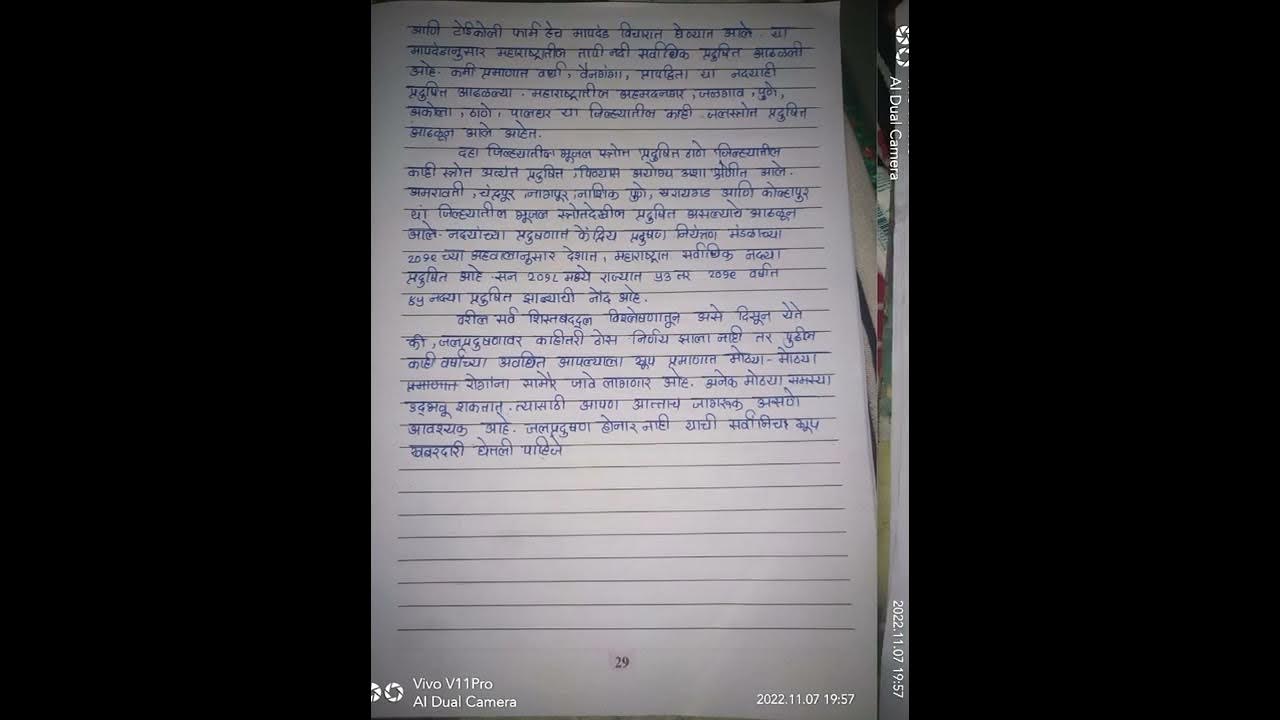 आणि टोडिकोली फार्म हेच मापदंड विचारात घेण्यात आले. या
मापदंडानुसार महाराष्ट्रातील तापी नदी सर्वाधिक प्रदुषित आढळली
आहे. कमी प्रमाणात वर्धा, वैनगंगा, प्राणहिता या नदयाही
प्रदुषित आढळल्या. महाराष्ट्रातील अहमदनगर, जळगाव, पुणे,
अकोला, ठाणे, पालघर या जिल्ह्यातील काही जलस्त्रोत प्रदुषित
आढळून आले आहेत.
दहा जिल्ह्यातील भूजल स्त्रोत प्रदुषित ठाणे जिल्ह्यातील
काही स्त्रोत अत्यंत प्रदुषित, पिण्यास अयोग्य अशा श्रेणीत आले.
अमरावती, चंद्रपूर, नागपूर, नाशिक पुणे, रायगड आणि कोल्हापूर
या जिल्ह्यातील भूजल स्त्रोतदेखील प्रदुषित असल्याचे आढळून
आले. नदयांच्या प्रदुषणात केंद्रिय प्रदुषण नियंत्रण मंडळाच्या
२०१९ च्या अहवालानुसार देशात, महाराष्ट्रात सर्वाधिक नद्या
प्रदुषित आहे. सन २०१८ मध्ये राज्यात ५३ तर २०१९ वर्षात
नद्या प्रदुषित झाल्याची नोंद आहे.
वरील सर्व शिस्तबद्दल विश्लेषणातून असे दिसून येते
की, जलप्रदुषणावर काहीतरी ठोस निर्णय झाला नाही तर पुढील
काही वर्षाच्या अवधित आपल्याला खूप प्रमाणात मोठ्या - मोठ्या
प्रमाणात रोगांना सामोरे जावे लागणार आहे. अनेक मोठया समस्या
उद्भवू शकतात. त्यासाठी आपण आत्ताच जागरूक असणे
आवश्यक आहे. जलप्रदुषण होनार नाही याची सर्वानिच खूप
खबरदारी घेतली पाहिजे
29
Vivo V11Pro
AI Dual Camera
2022.11.07 19:57
AI Dual Camera
2022.11.07 19:57